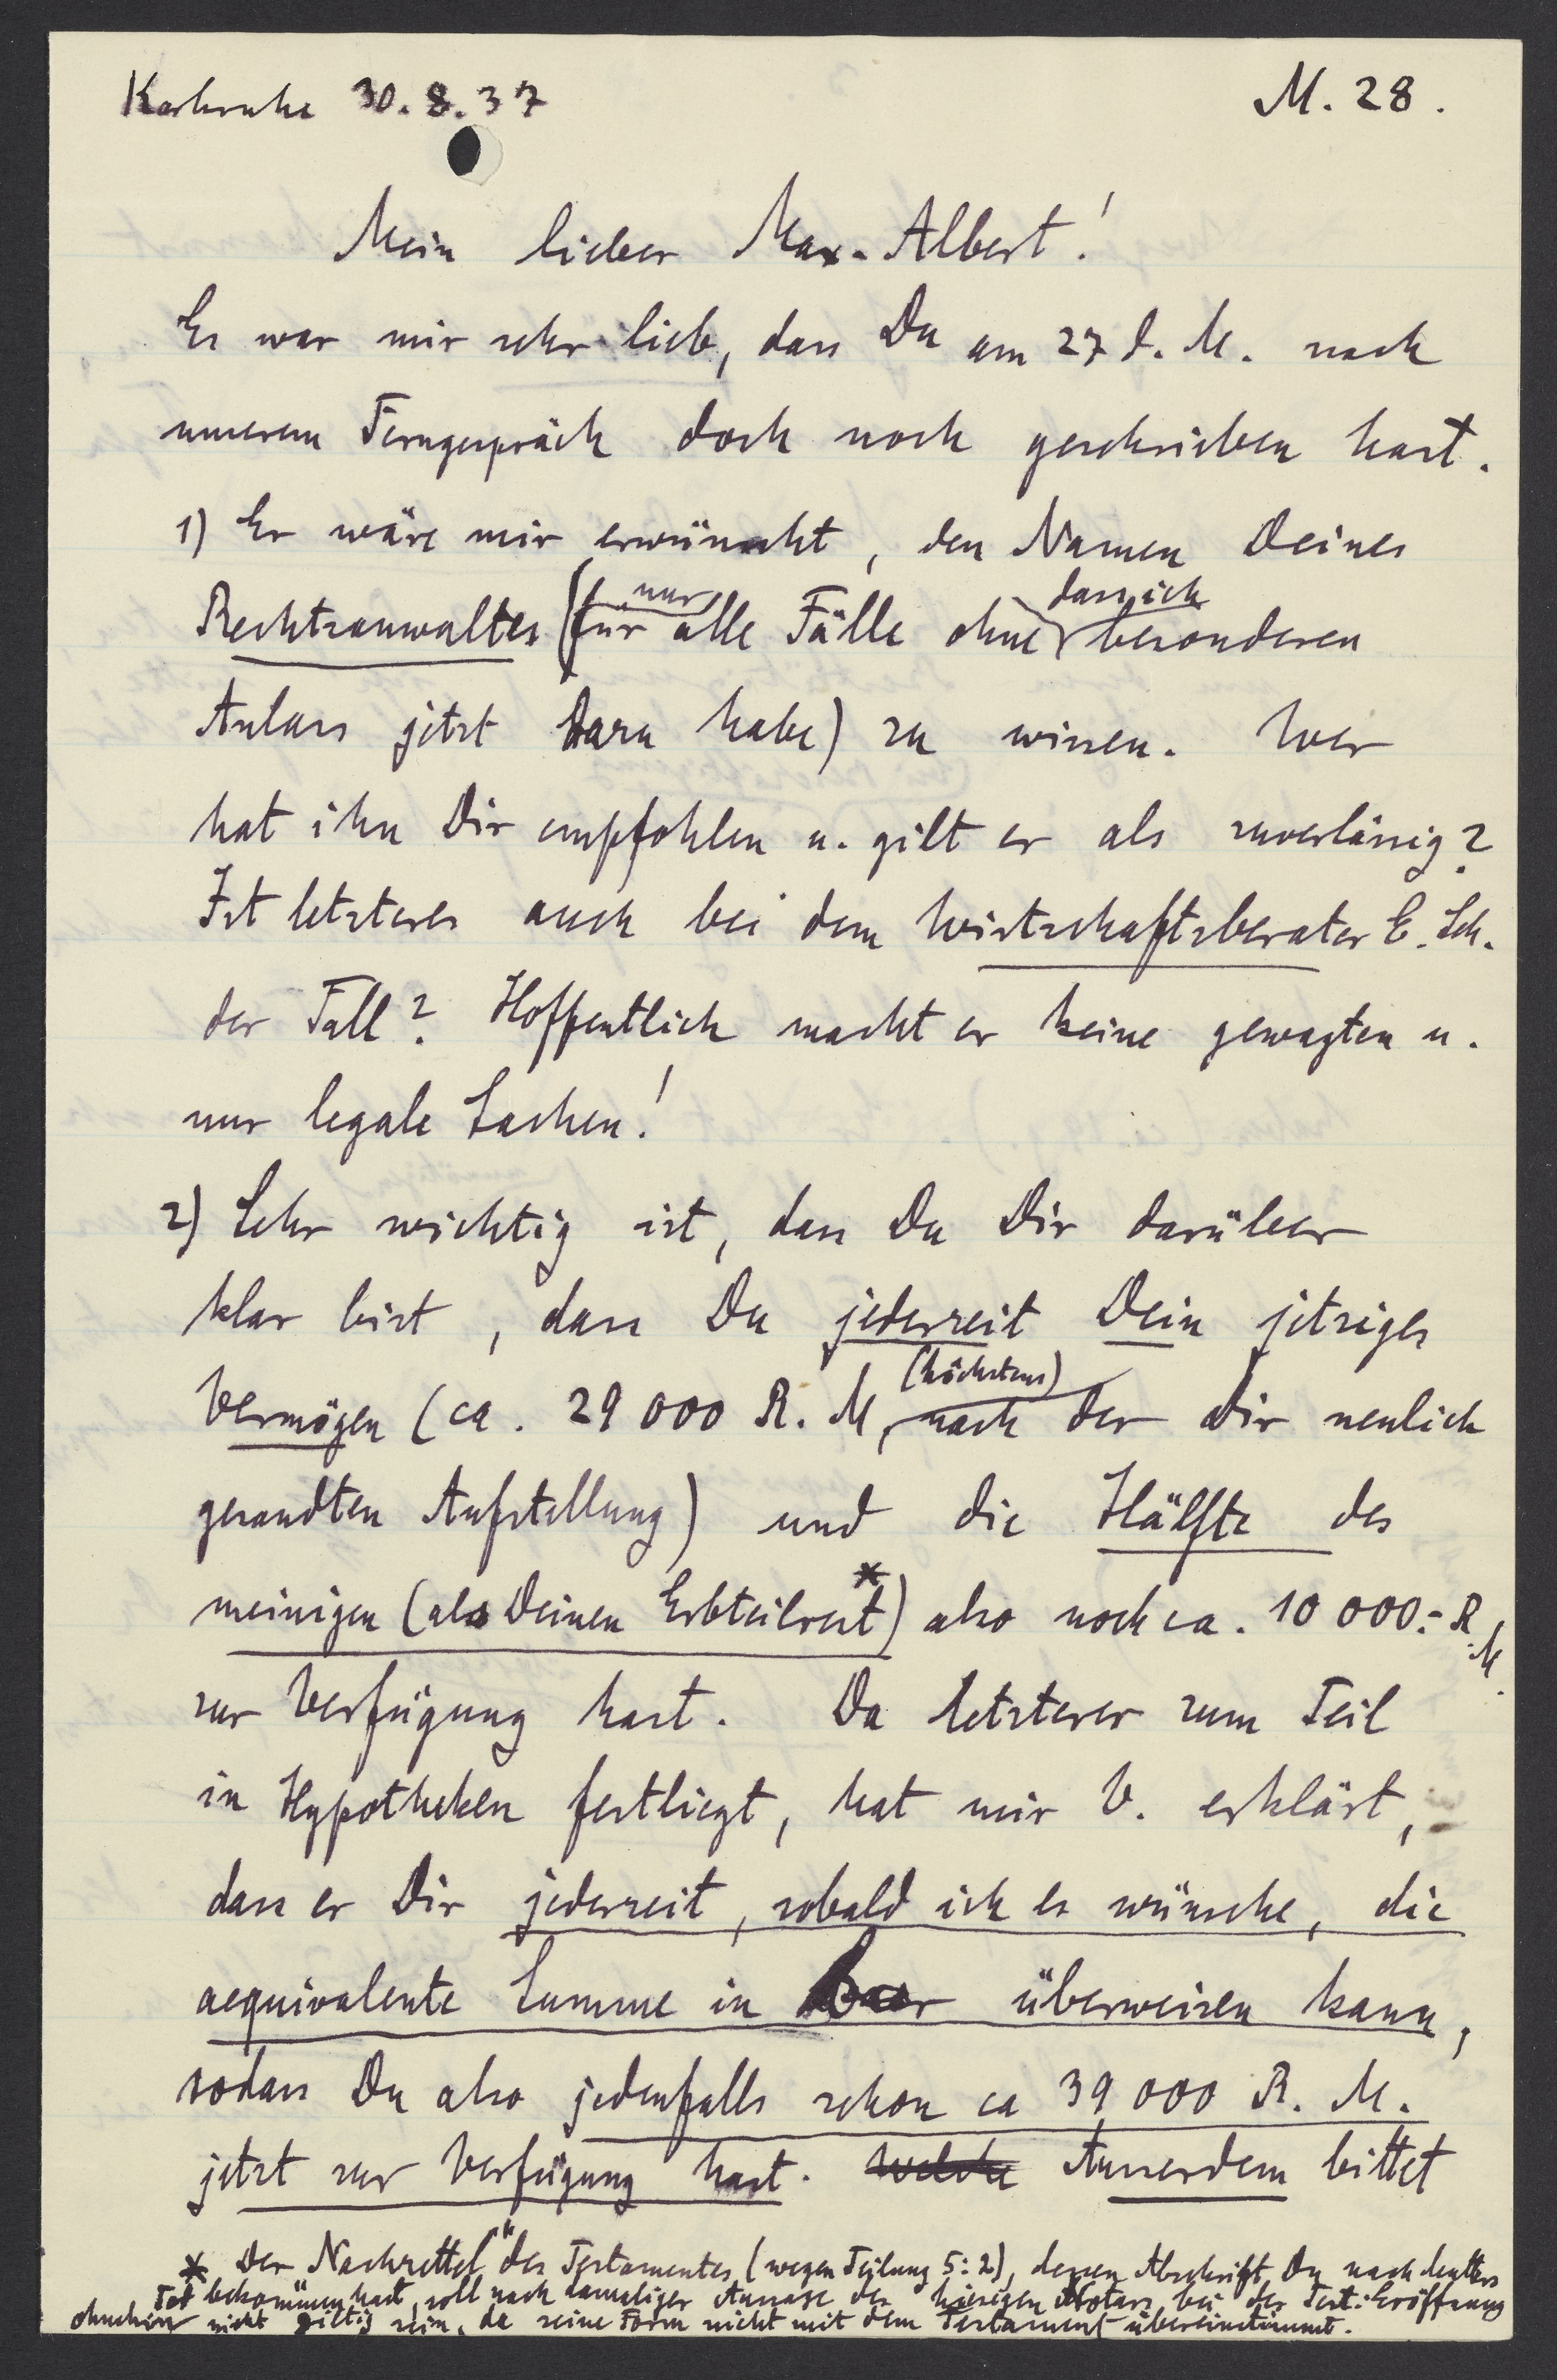 Karlsruhe 30.8.37 M. 28.
Mein lieber Max-Albert!
Es war mir sehr lieb, dass Du am 27 d. M. nach
unserem Ferngespräch doch noch geschrieben hast.
1) Es wäre mir erwünscht, den Namen Deines
Rechtsanwaltes (nur für alle Fälle ohne dass ich besonderen
Anlass jetzt dazu habe) zu wissen. Wer
hat ihn Dir empfohlen u. gilt er als zuverlässig?
Ist letzteres auch bei dem Wirtschaftsberater E. Sch.
der Fall? Hoffentlich macht er keine gewagten u.
nur legale Sachen!
2) Sehr wichtig ist, dass Du Dir darüber
klar bist, dass Du jederzeit Dein jetziges
Vermögen (ca. 29 000 R. M. (höchstens) nach der Dir neulich
gesandten Aufstellung) und die Hälfte des
meinigen (als Deinen Erbteilrest*) also noch ca. 10 000.- R.M.
zur Verfügung hast. Da letzterer zum Teil
in Hypotheken festliegt, hat mir V. erklärt,
dass er Dir jederzeit, sobald ich es wünsche, die
aequivalente Summe in bar überweisen kann,
sodass Du also jedenfalls schon ca 39 000 R. M.
jetzt zur Verfügung hast. welche Ausserdem bittet
* Der Nachzettel" des Testamentes (wegen Teilung 5:2), dessen Abschrift Du nach
Tod bekommen hast, soll nach damaliger Aussage des hiesigen Notars, bei der Test. Eröffnung
ohnehin nicht giltig sein, da seine Form nicht mit dem Testament übereinstimmt.